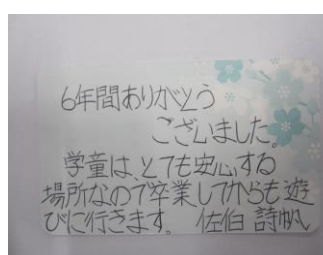 6年間ありがとう
ございました。
学童は、とても安心する
場所なので卒業してからも遊
びに行きます。 佐伯 詩帆